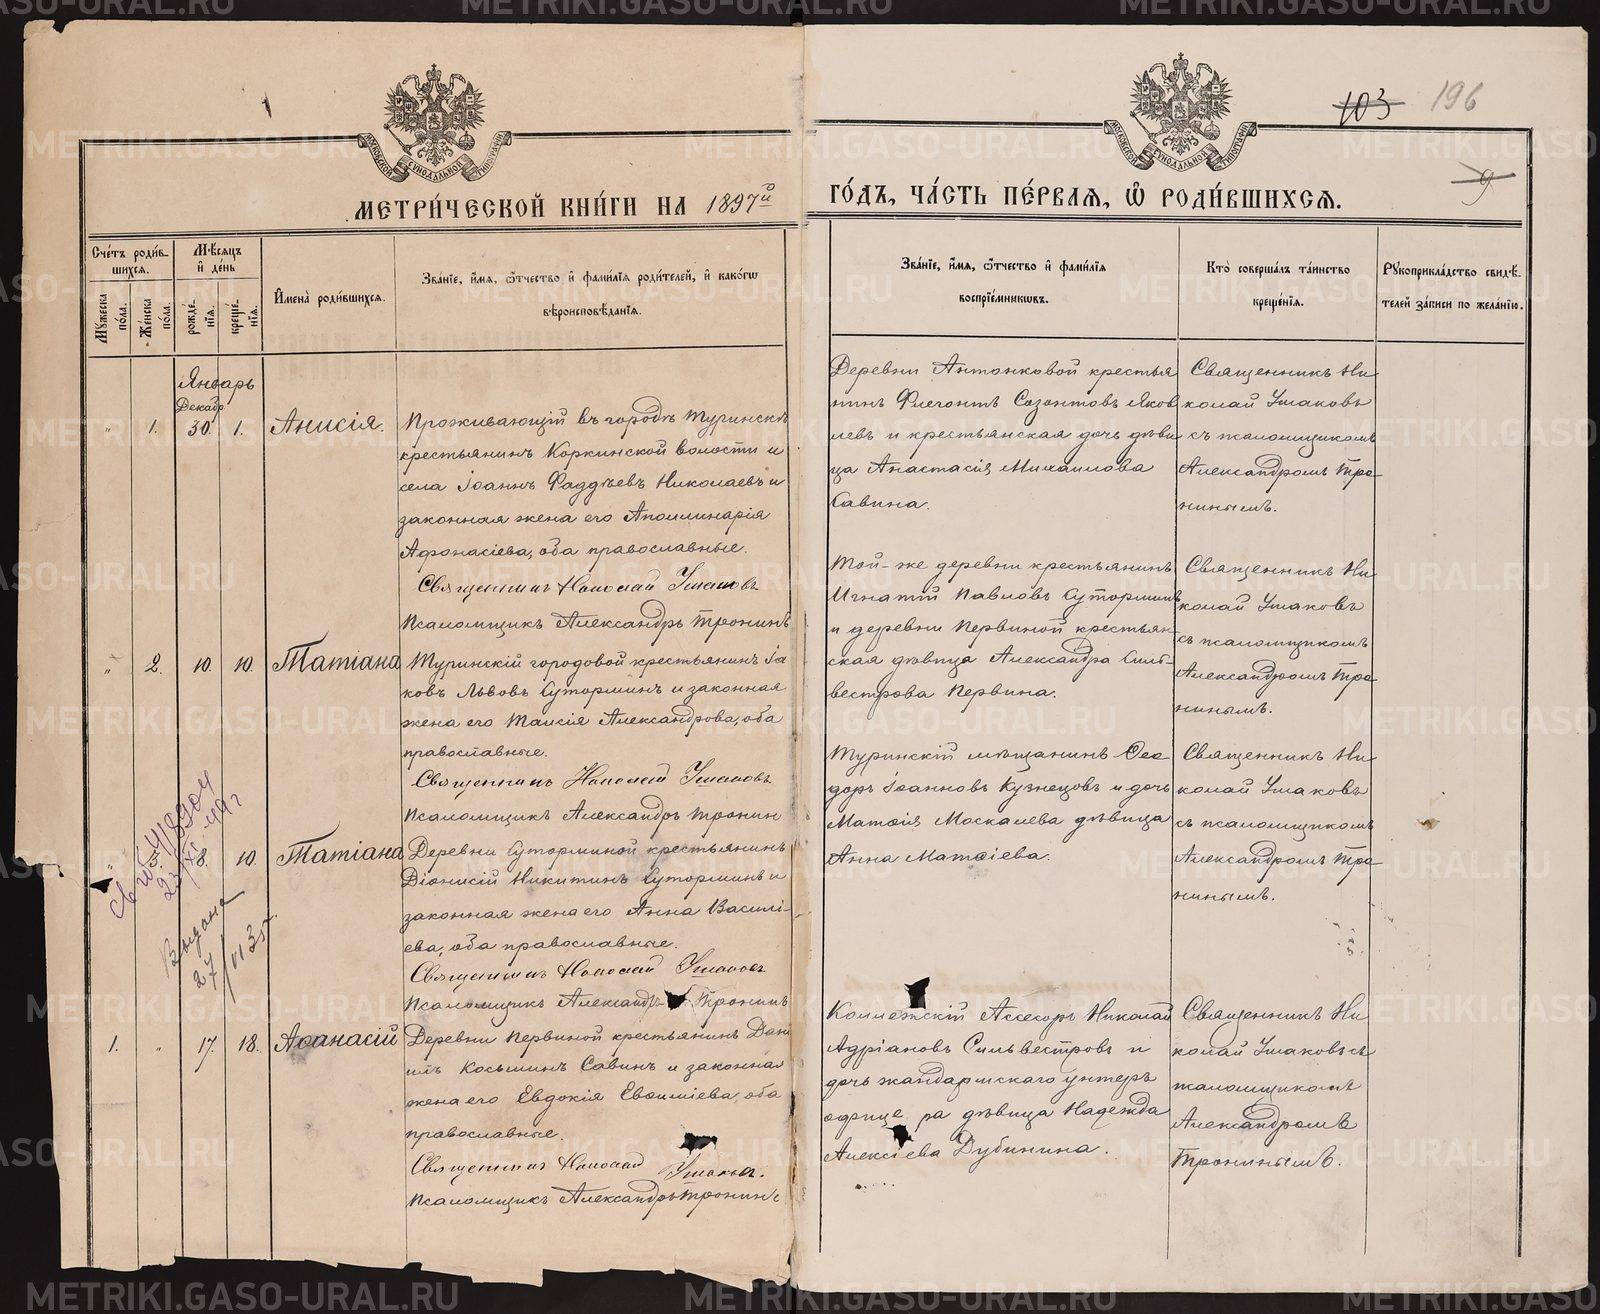 103 196
9
МОСКОВСКОЙ СѴНОДАЛЬНОЙ ТИПОГРАФІИ
МОСКОВСКОЙ СѴНОДАЛЬНОЙ ТИПОГРАФІИ
МЕТРИ́ЧЕСКОЙ КНИ́ГИ НА 1897й ГО́ДЪ, ЧА́СТЬ ПЕ́РВАѦ, Ѡ҆ РОДИ́ВШИХСѦ.
Сче́тъ роди́в-
шихся.
Мꙋ́жеска по́ла.
Же́нска по́ла.
Мѣ́сяцъ
и҆ де́нь
рожде́-
нїя.
креще́-
нїя.
И҆мена̀ роди́вшихся.
Зва́нїе, и҆́мя, ѻ҆́тчество и҆ фами́лїя роди́телей, и҆ како́гѡ
вѣроисповѣ́данїя.
Зва́нїе, и҆́мя, ѻ҆́тчество и҆ фами́лїя
воспрїе́мникѡвъ.
Кто̀ соверша́лъ та́инство
креще́нїя.
Рꙋкоприкла́дство свидѣ́-
телей за́писи по жела́нїю.
Январь
Декабр
„ 1. 30. 1. Анисія.
Проживающій въ городѣ Туринскѣ
крестьянинъ Коркинской волости и
села Іоаннъ Фаддѣевъ Николаевъ и
законная жена его Аполлинарія
Афонасіева, оба православные.
Священникъ Николай Ушаковъ
Псаломщикъ Александръ Тронинъ
Деревни Антонковой крестья
нинъ Флегонтъ Созонтовъ Яков
левъ и крестьянская дочь дѣви
ца Анастасія Михаилова
Савина.
Священникъ Ни
колай Ушаковъ
съ псаломщикомъ
Александромъ Тро-
нинымъ.
„ 2. 10. 10. Татіана
Туринскій городовой крестьянинъ Іа
ковъ Львовъ Суторминъ и законная
жена его Таисія Александрова, оба
православные.
Священникъ Николай Ушаковъ
Псаломщикъ Александръ Тронин
Той-же деревни крестьянинъ
Игнатій Павловъ Суторминъ
и деревни Первиной крестьян-
ская дѣвица Александра Силь-
вестрова Первина.
Священникъ Ни
колай Ушаковъ
съ псаломщикомъ
Александромъ Тро
нинымъ.
„ 8. 10. Татіана
Деревни Суторминой крестьянинъ
Діонисій Никитинъ Суторминъ и
законная жена его Анна Василі-
ева, оба православные.
Священникъ Николай Ушаковъ
Псаломщикъ Александръ Тронинъ
Туринскій мѣщанинъ Ѳео-
доръ Іоанновъ Кузнецовъ и дочь
Матѳія Москалева дѣвица
Анна Матѳіева.
Священникъ Ни
колай Ушаковъ
съ псаломщикомъ
Александромъ Тро-
нинымъ.
Выдана
1. „ 17. 18. Аѳанасій
Деревни Первиной крестьянинъ Дани
илъ Косьминъ Савинъ и законная
жена его Евдокія Евѳиміева, оба
православные.
Священникъ Николай Ушаковъ.
Псаломщикъ Александръ Тронинъ
Коллежскій Ассесоръ Николай
Адріановъ Сильвестровъ и
дочь жандармскаго унтеръ
офице ра дѣвица Надежда
Алексіева Дубинина.
Священникъ Ни
колай Ушаковъ съ
псаломщикомъ
Александромъ
Тронинымъ.
METRIKI.GASO-URAL.RU